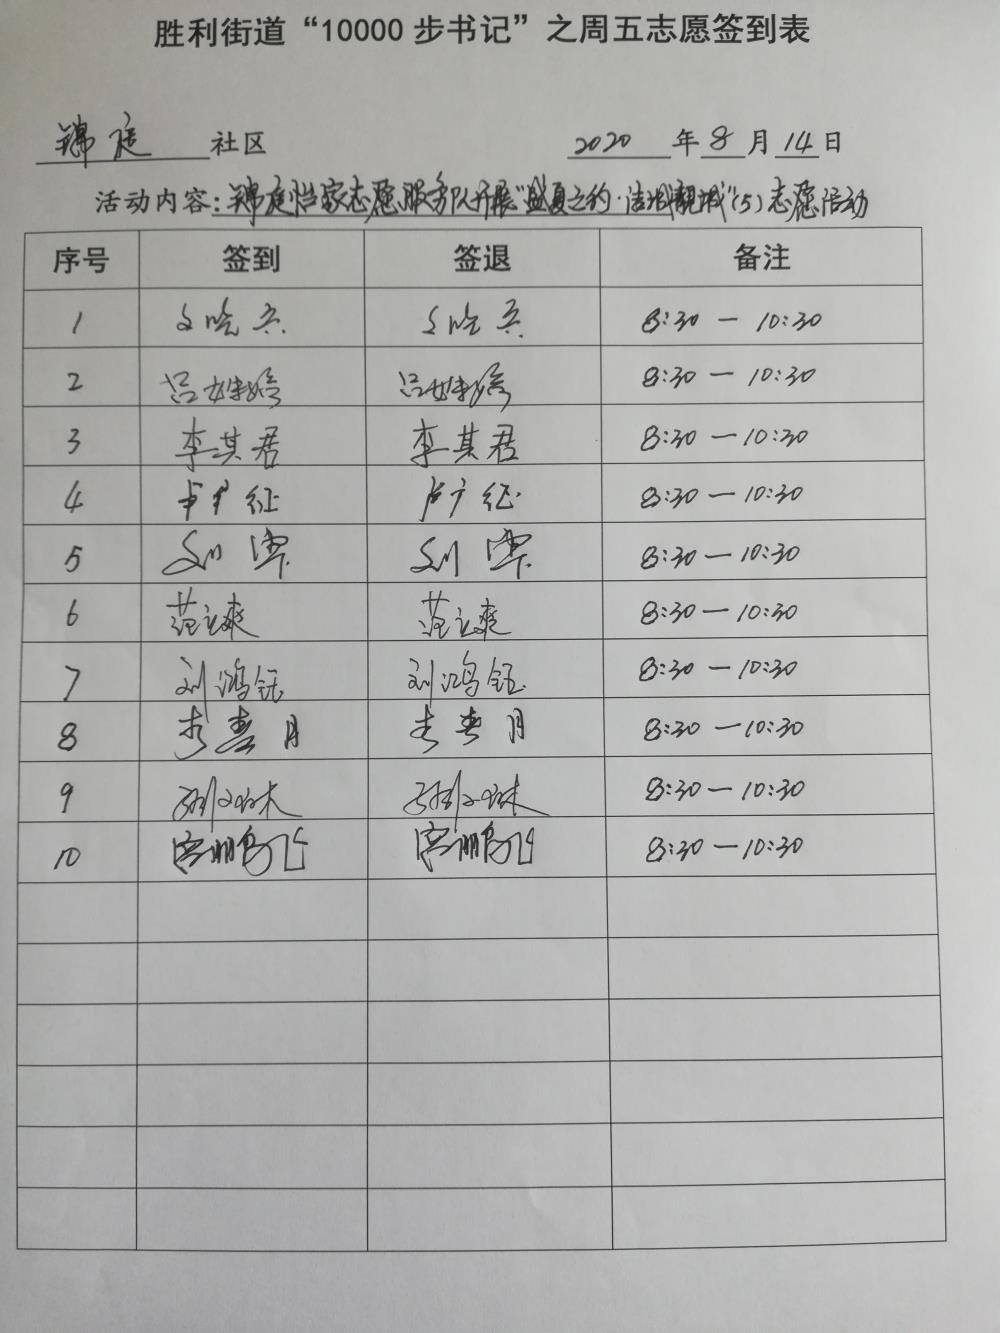 胜利街道“10000步书记”之周五志愿签到表
锦庭社区 2020年8月14日
活动内容:锦庭怡家志愿服务队开展“盛夏之约·洁城靓城”(5)志愿活动
序号 签到 签退 备注
1 文晓兵 文晓兵 8:30－10:30
2 吕姝婷 吕姝婷 8:30－10:30
3 李其君 李其君 8:30－10:30
4 卢广征 卢广征 8:30－10:30
5 刘霈 刘霈 8:30－10:30
6 范立爽 范立爽 8:30－10:30
7 刘鸿钰 刘鸿钰 8:30－10:30
8 李春月 李春月 8:30－10:30
9 8:30－10:30
10 宫鹏飞 宫鹏飞 8:30－10:30